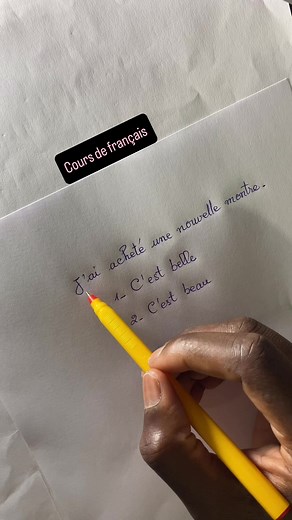 Cours de français
J'ai acheté une nouvelle montre.
1- C'est belle
2- C'est beau